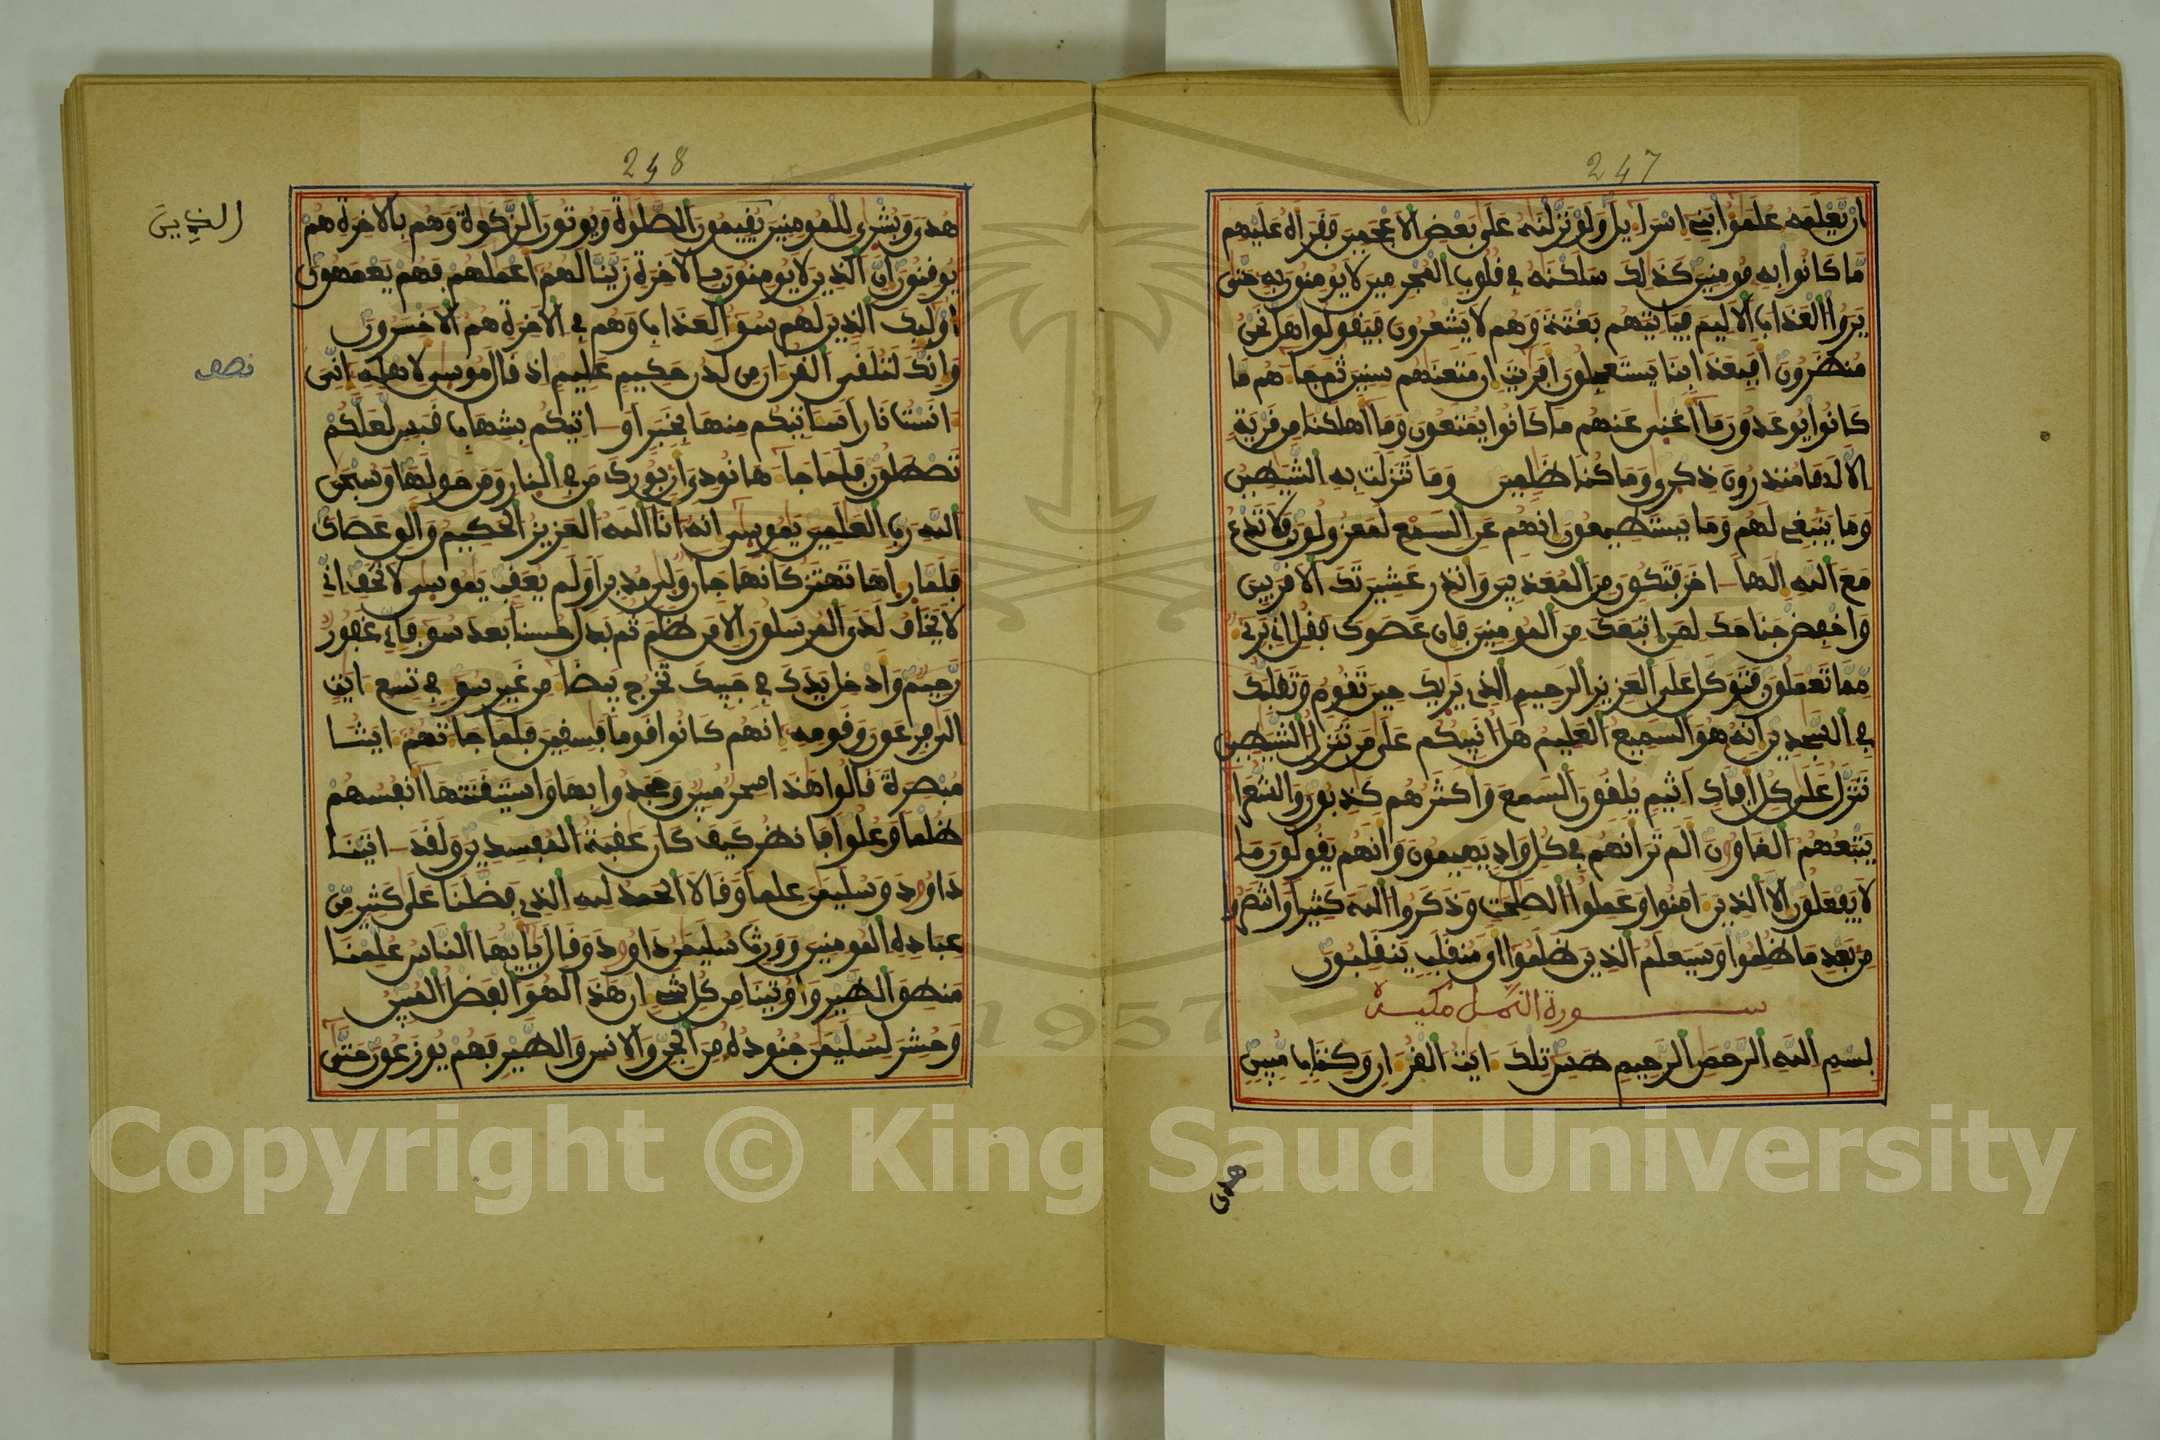 247
ان يعلمه علمؤا بنے اسراءيل ولو نزلنه على بعض الاعجمين فقراه عليهم
ما كانوا به مومنين كذلك سلكنه في قلوب المجرمين لا يومنون به حتى
يروا العذاب الاليم فياتيهم بغتة وهم لا يشعرون فيقولوا هل نحن
منظرون افبعذابنا يستعجلون افريت ان متعنهم سنين ثم جاءهم ما
كانوا يوعدون ما أغنى عنهم ما كانوا يمتعون وما أهلكنا من قرية
الا لها منذرون ذكرى وما كنا ظلمين وما تنزلت به الشيطين
وما ينبغي لهم وما يستطيعون انهم عن السمع لمعزولون فلا تدع
مع الله الها اخر فتكون من المعذبين وانذر عشيرتك الاقربين
واخفض جناحك لمن اتبعك من المومنين فان عصوك فقل اني برئ
مما تعملون فتوكل على العزيز الرحيم الذي يريك حين تقوم وتقلبك
في السجدين انه هو السميع العليم هل انبئكم على من تنزل الشيطين
تنزل على كل افاك اثيم يلقون السمع واكثرهم كذبون والشعرا
يتبعهم الغاون الم تر انهم في كل واد يهيمون وانهم يقولون ما
لا يفعلون الا الذين امنوا وعملوا الصلحت وذكروا الله كثيرا وانتصروا
من بعد ما ظلموا وسيعلم الذين ظلموا اي منقلب ينقلبون
سورة النمل مكية
بسم الله الرحمن الرحيم طس تلك ايت القران وكتاب مبين
هدى
248
هدى وبشرى للمومنين يقيمون الصلوة ويوتون الزكوة وهم بالاخرة هم
يوقنون ان الذين لا يومنون بالاخرة زينا لهم اعملهم فهم يعمهون
اولئك الذين لهم سوء العذاب وهم في الاخرة هم الاخسرون
وانك لتلقى القران من لدن حكيم عليم اذ قال موسى لاهله اني
انست نارا ساتيكم منها بخبر او اتيكم بشهاب قبس لعلكم
تصطلون فلما جاءها نودي ان بورك من في النار ومن حولها وسبحن
الله رب العلمين يموسى انه انا الله العزيز الحكيم والق عصاك
فلما راها تهتز كانها جان ولى مدبرا ولم يعقب يموسى لا تخف اني
لا يخاف لدي المرسلون الا من ظلم ثم بدل حسنا بعد سوء فاني غفور
رحيم وادخل يدك في جيبك تخرج بيضاء من غير سوء في تسع ايت
الى فرعون وقومه انهم كانوا قوما فسقين فلما جاءتهم ايتنا
مبصرة قالوا هذا سحر مبين وجحدوا بها واستيقنتها انفسهم
ظلما وعلوا فانظر كيف كان عقبة المفسدين ولقد اتينا
داود وسليمن علما وقالا الحمد لله الذي فضلنا على كثير من
عباده المومنين وورث سليمن داود وقال يايها الناس علمنا
منطق الطير واوتينا من كل شيء ان هذا لهو الفضل المبين
وحشر لسليمن جنوده من الجن والانس والطير فهم يوزعون حتى
الذين
نصف
1957
Copyright © King Saud University